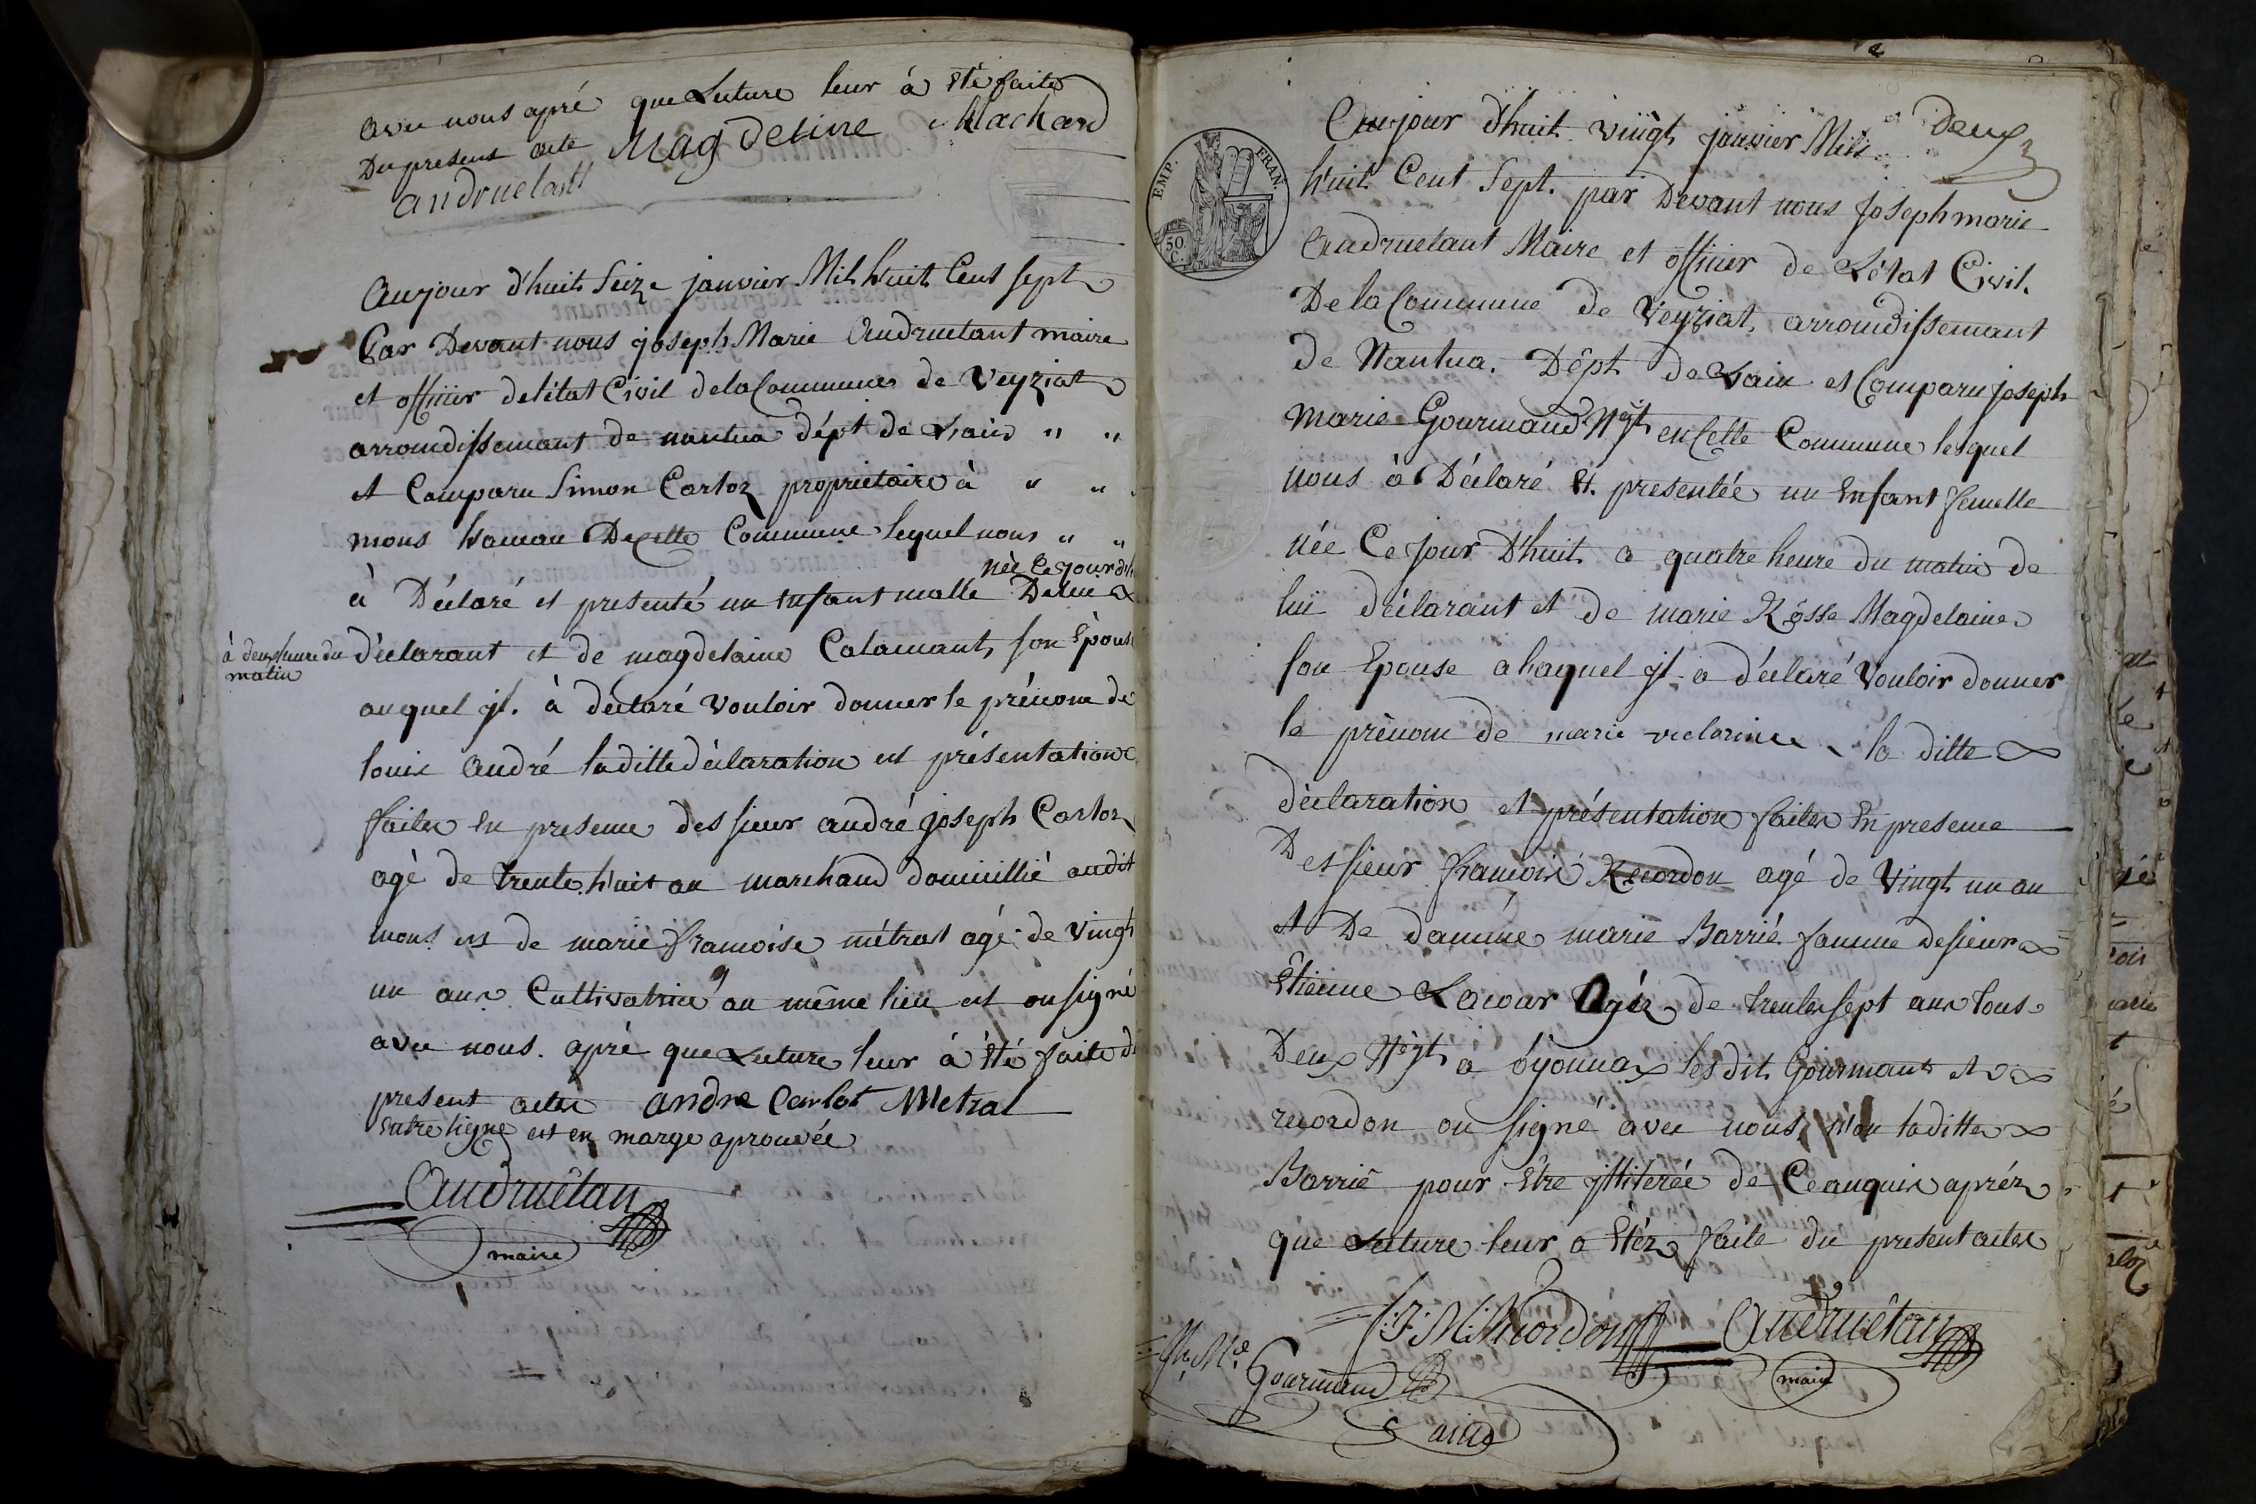 avec nous apré que Lecture leur à été faite
Du present acte Magdeline Machard
andruetant
Aujour d'huit Seize janvier Mil huit Cent sept
Par Devant nous joseph Marie Andruetant maire
et officier de l'état Civil de la Commune de Veyziat
arroundissemant de nantua dépt de Lain " "
et Comparu Simon Carloz propriétaire à " "
mons hamau De cette Commune lequel nous " "
née Ce jour dh
à Déclaré et presenté un enfant malle De lui
à deux heure du
matin
déclarant et de magdelaine Calamant son Epouse
auquel jl. à déclaré Vouloir donner le prénom de
louis André laditte déclaration et présentation
faites En presence des sieur andré joseph Carloz
agé de trente huit an marchand domicillié audit
mons et de marie francoise métral agé de Vingt
un ans Cultivatrice au même lieu et on signé
avec nous. apré que Lecture leur à été faite du
present actes andre Carlot Metral
Entre ligne et en marge aprouvée
Andruétan
maire
EMP. FRAN.
50
C.
Deux
Aujour d'huit vingt janvier Mil
huit Cent Sept. par Devant nous Joseph marie
Andruetant Maire et officier de L'état Civil.
De la Commune de Veyziat, arroundissemant
de Nantua. Dépt de Lain et Comparu joseph
Marie Gourmand Ngt en Cette Commune lesquel
nous à Déclaré Et. presentée un Enfant femelle
née Ce jour D'huit a quatre heure du matin de
lui déclarant et de marie Rosse Magdelaine
son Epouse a laquel jl a déclaré Vouloir donner
le prènom de marie victorine la ditte
déclaration et présentation faites En presence
Des sieur francois Recordon agé de Vingt un an
et De damme marie Barrié famme de sieur
Etienne Lacour Agée de trente sept ans tous
Deux Ngt à oyonnax les dit Gourmant et
recordon on signé avec nous, n'on laditte
Barrié pour Etre jllitérée de Ce anquis apréz
que Lecture leur a Etéz faite du present actes
J. M. Recordon Andruétan
maire
Jh. Me.
Gourmand
ainé